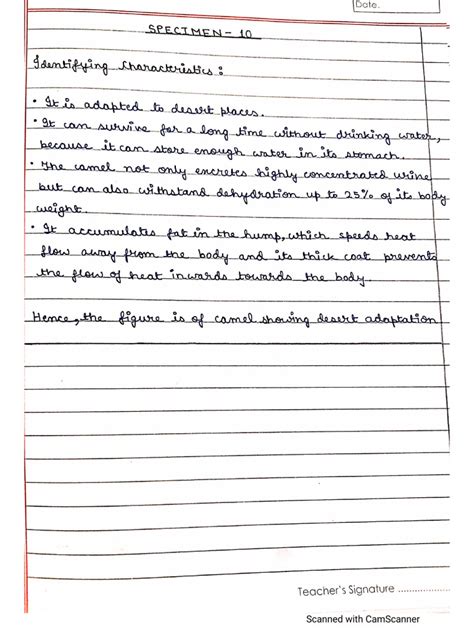 Date.
SPECIMEN - 10
Identifying Characteristics :
• It is adapted to desert places.
• It can survive for a long time without drinking water,
because it can store enough water in its stomach.
• The camel not only encretes highly concentrated urine
but can also withstand dehydration up to 25% of its body
weight.
• It accumulates fat in the hump, which speeds heat
flow away from the body and its thick coat prevents
the flow of heat inwards towards the body.
Hence, the figure is of camel showing desert adaptation
Teacher's Signature ...............
Scanned with CamScanner